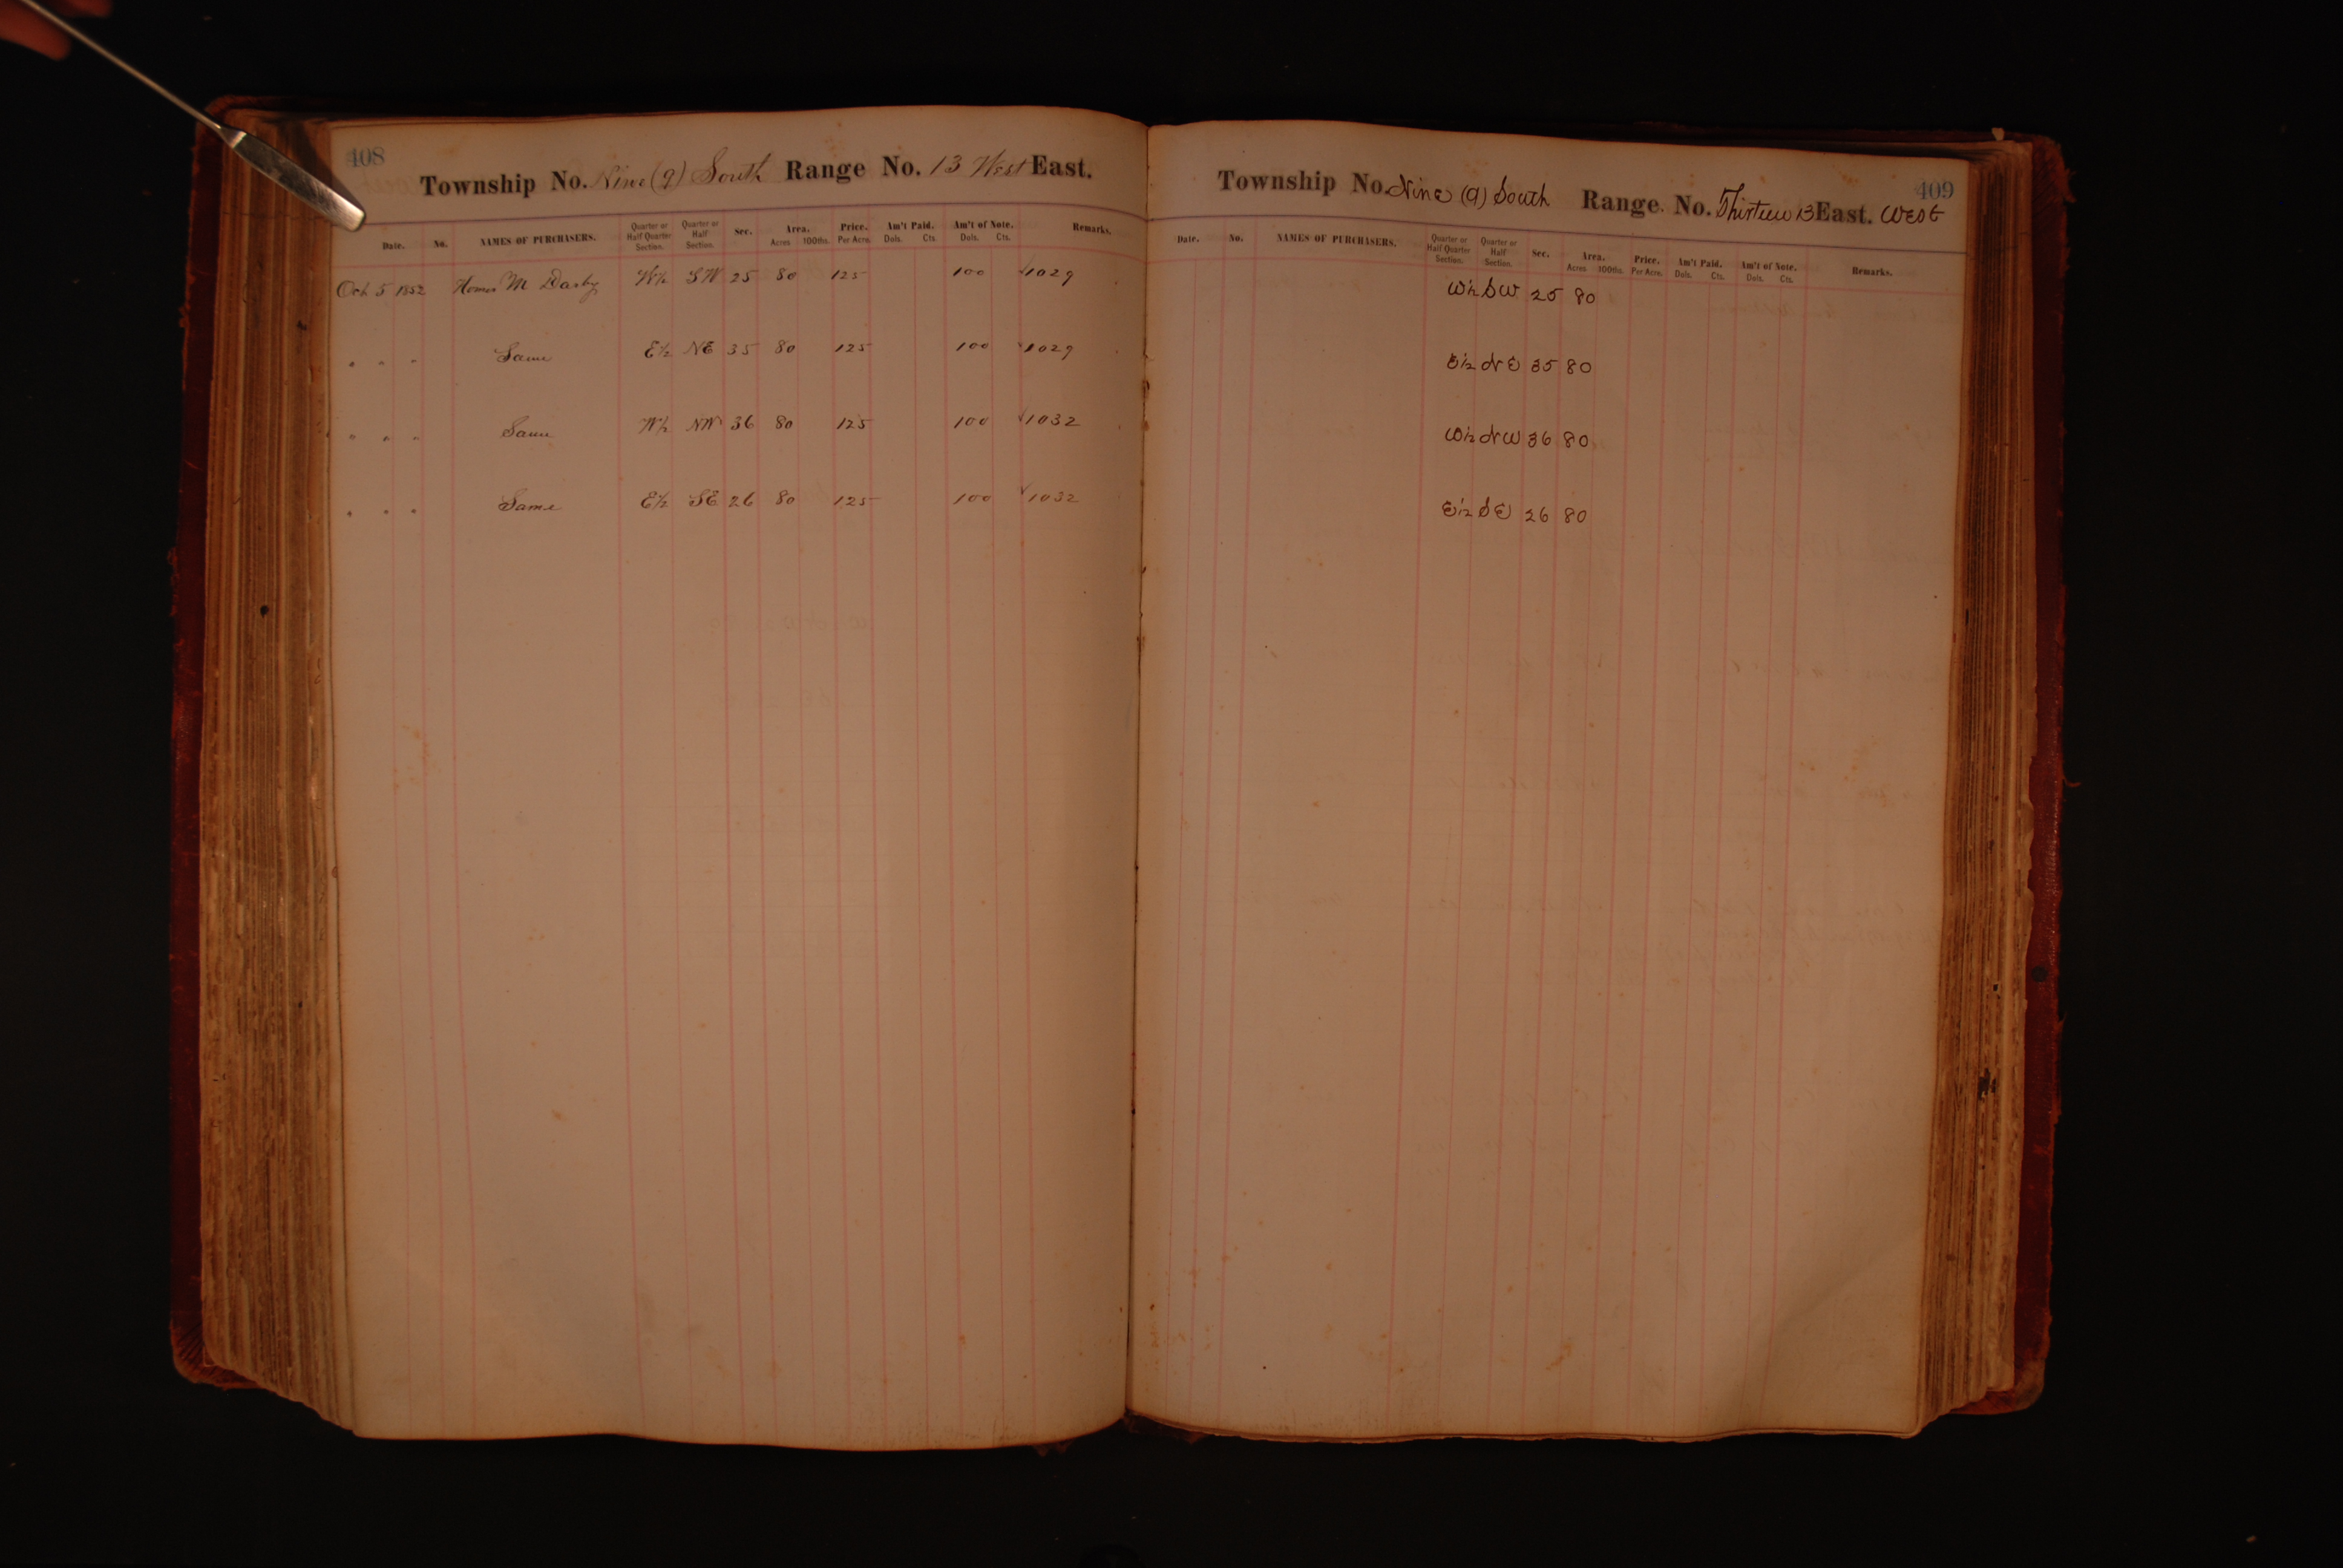 408
Township No. Nine (9) South Range No. 13 West East.
Date. No. NAMES OF PURCHASERS. Quarter or Half Quarter Section. Quarter or Half Section. Sec. Area. Acres 100ths. Price. Per Acre. Am't Paid. Dols. Cts. Am't of Note. Dols. Cts. Remarks.
Oct 5 1852 M Darby W½ SW 25 80 125 100 √1029
" " " Same E½ NE 35 80 125 100 √1029
" " " Same W½ NW 36 80 125 100 √1032
" " " Same E½ SE 26 80 125 100 √1032
409
Township No. Nine (9) South Range No. Thirteen 13 East. West
Date. No. NAMES OF PURCHASERS. Quarter or Half Quarter Section. Quarter or Half Section. Sec. Area. Acres 100ths. Price. Per Acre. Am't Paid. Dols. Cts. Am't of Note. Dols. Cts. Remarks.
W½ SW 25 80
E½ NE 35 80
W½ NW 36 80
E½ SE 26 80